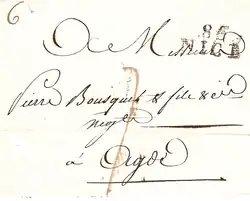 6
85
NICE
A Messieurs
Pierre Bousquet & fils & Cie
negts
7
à Agde